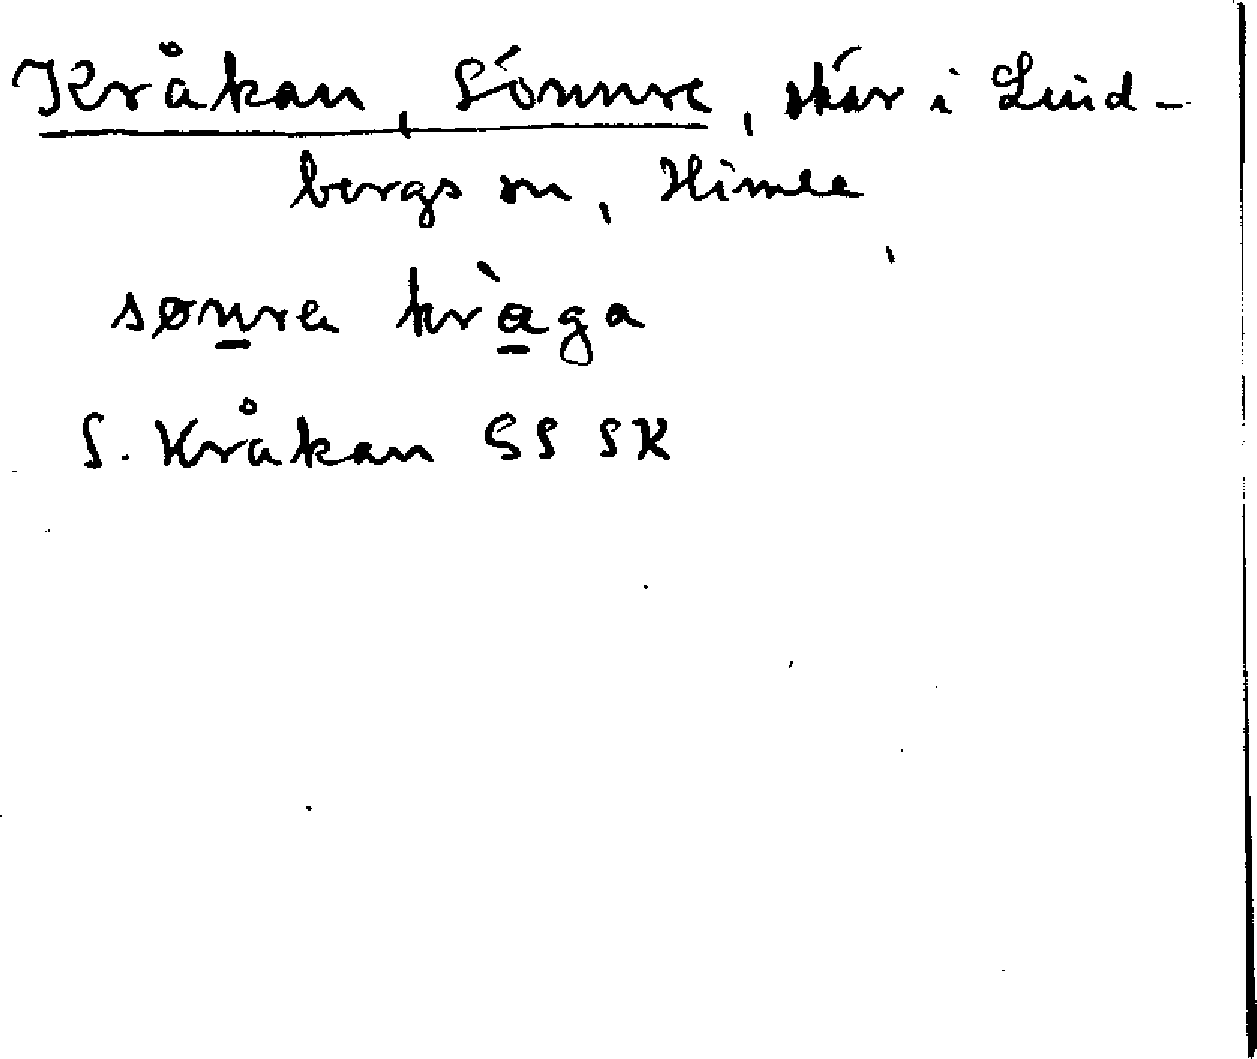 Kråkan, Sönnre, skär i Lind-
bergs sn, Himle
sønra kràga
S. Kråkan SS SK